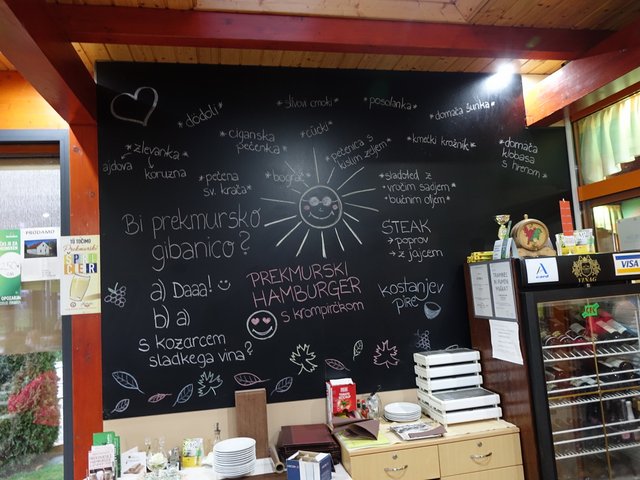 * dödoli *
* šlivovi cmoki *
* posolanka *
* domača šunka *
* zlevanka
ajdova
koruzna
* ciganska
pečenka *
* ćuški *
* pečenica s
kislim zeljem *
* kmečki krožnik *
* domača
klobasa
s hrenom *
* pečena
sv. krača *
* bograč *
* sladoled z
vročim sadjem *
* bučnim oljem *
Bi prekmursko
gibanico?
a) Daaa!
b) a)
s kozarcem
sladkega vina?
PREKMURSKI
HAMBURGER
s krompirčkom
STEAK
→ poprov
→ z jajcem
kostanjev
pire
PRODAMO
TU TOČIMO
Prekmurski
ŠPRICER
VISA